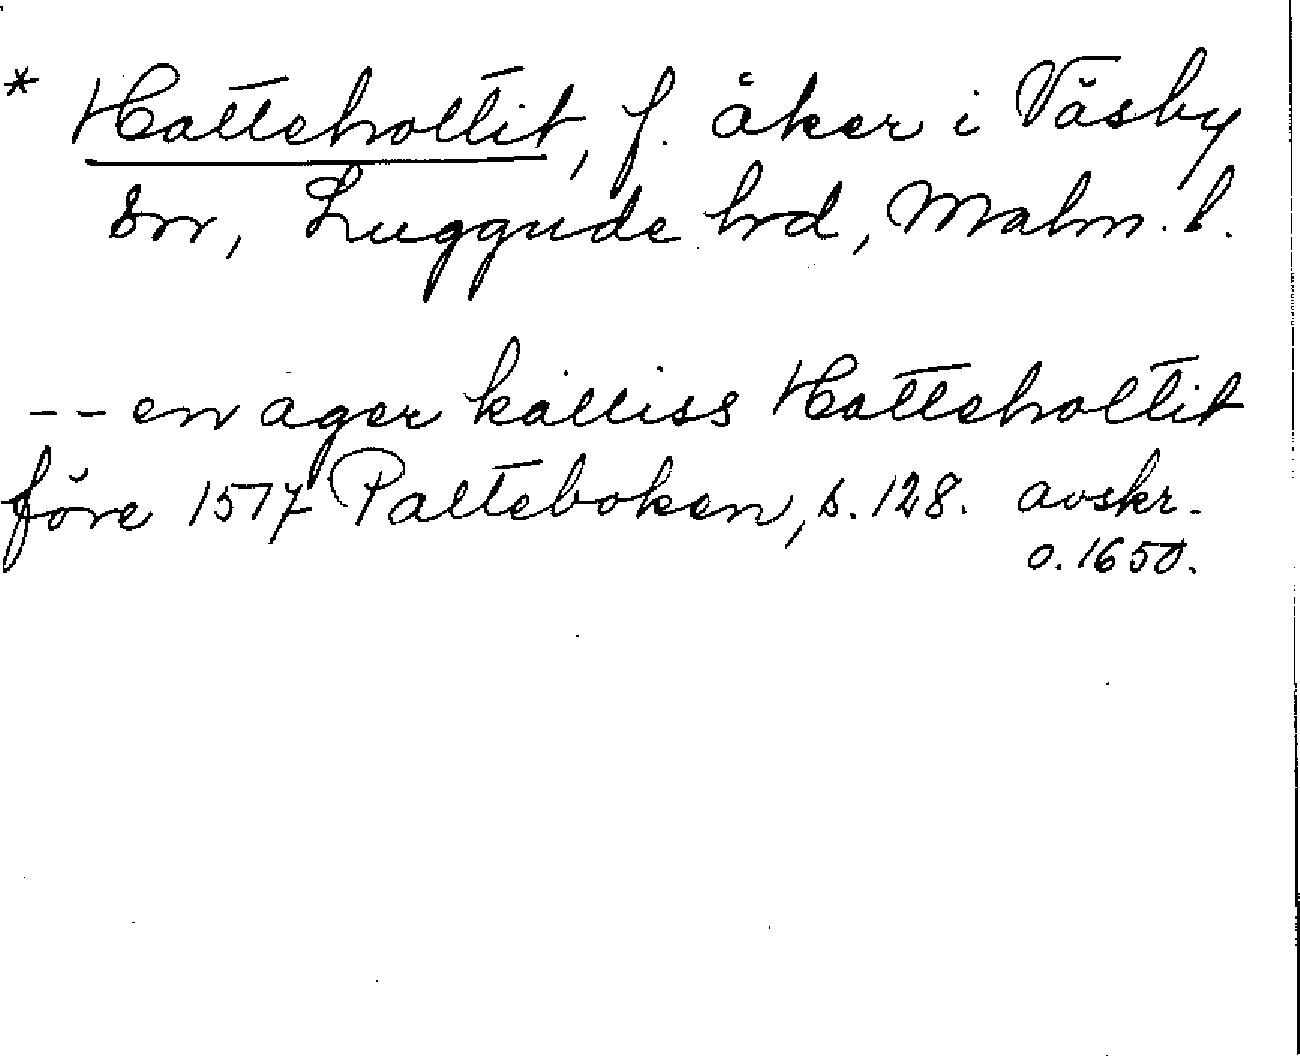 * Hattehollit, f. åker i Väsby
sn, Luggude hrd, Malm. l.
-- en ager kalliss Hattehollit
före 1517 Palteboken, s. 128. avskr.
o. 1650.